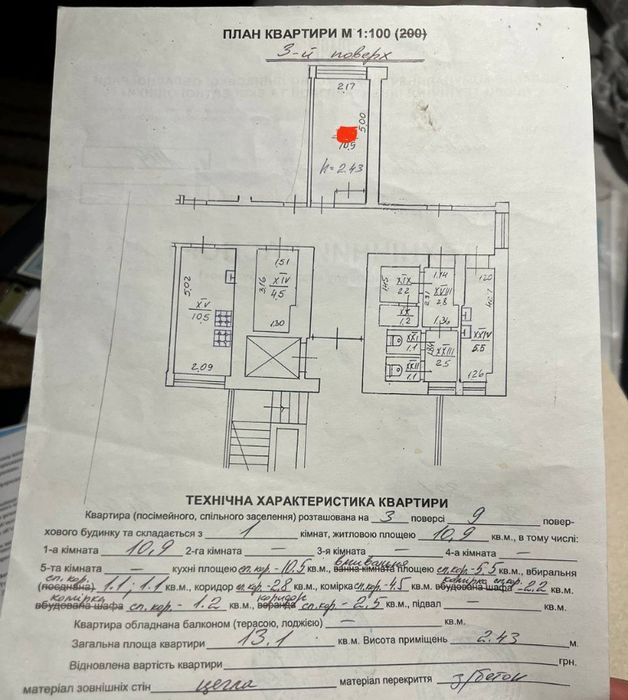 ПЛАН КВАРТИРИ М 1:100 (200)
3-й поверх
2.17
5.00
10.9
h=2.43
5.02
XV
10.5
2.09
1.51
3.16
XIV
4.5
1.30
1.45
XIX
2.2
XX
1.2
XXI
1.1
XXII
1.1
1.14
2.31
XVIII
2.8
1.36
1.84
XXIII
2.5
1.20
XXIV
5.5
1.26
ТЕХНІЧНА ХАРАКТЕРИСТИКА КВАРТИРИ
Квартира (посімейного, спільного заселення) розташована на 3 поверсі 9 повер-
хового будинку та складається з 1 кімнат, житловою площею 10,9 кв.м., в тому числі:
1-а кімната 10,9 2-га кімната — 3-я кімната — 4-а кімната —
умивальна
5-та кімната — кухні площею сп.кор.- 10.5 кв.м., ванна кімната площею сп.кор.- 5.5 кв.м., вбиральня
сп.кор. комірка сп.кор.
(поєднана) 1.1; 1.1 кв.м., коридор сп.кор.- 2,8 кв.м., комірка сп.кор.- 4.5 кв.м. вбудована шафа - 2.2 кв.м.
комірка коридор
вбудована шафа сп.кор.- 1.2 кв.м., веранда сп.кор.- 2,5 кв.м., підвал — кв.м.
Квартира обладнана балконом (терасою, лоджією) — кв.м.
Загальна площа квартири 13.1 кв.м. Висота приміщень 2.43 м.
Відновлена вартість квартири грн.
матеріал зовнішніх стін цегла матеріал перекриття з/бетон